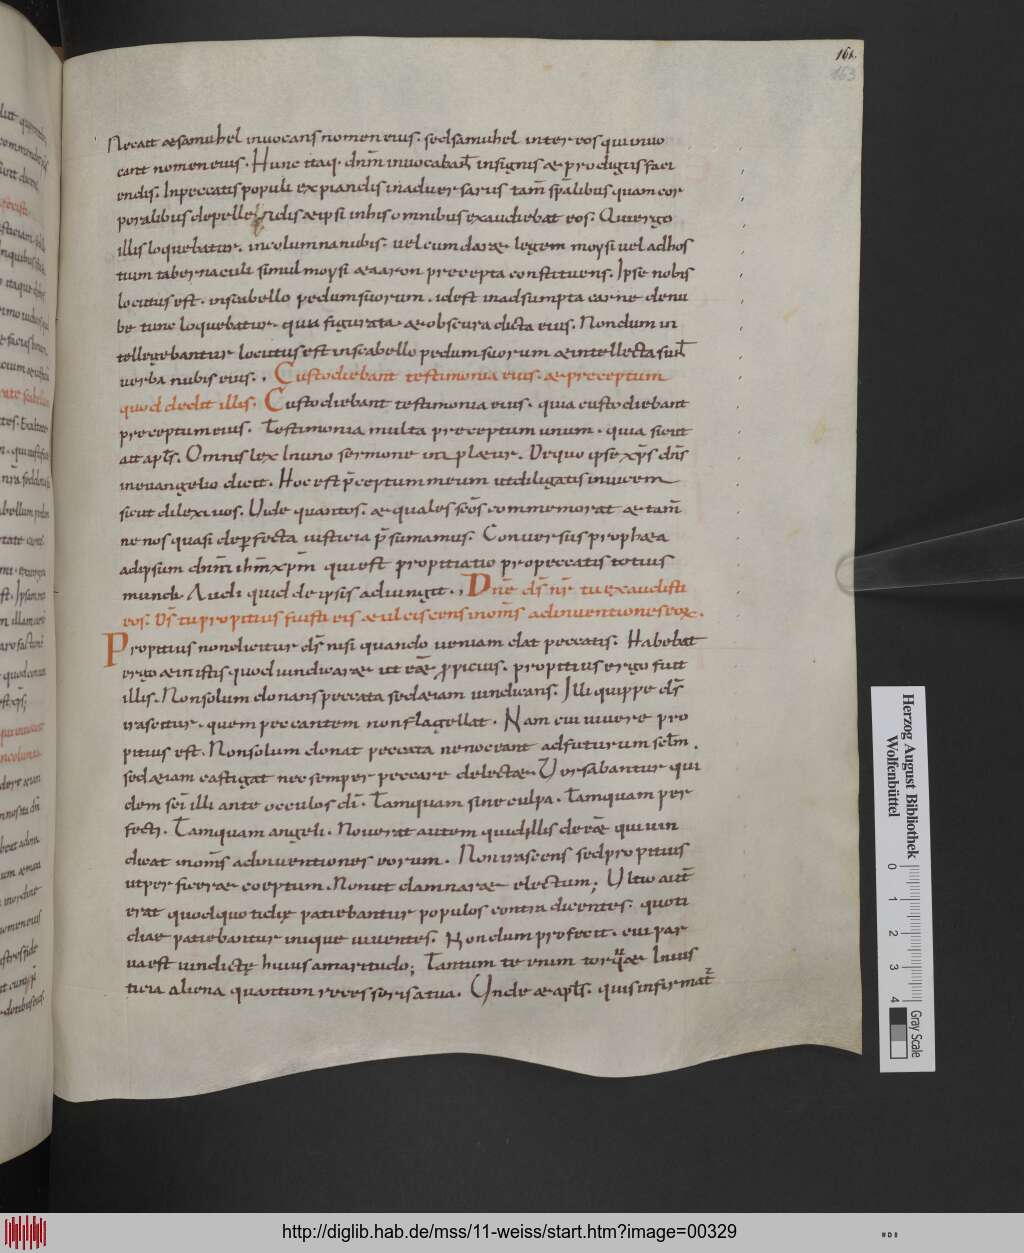 161.
163
Necatt & samuhel inuocans nomen eius. sed samuhel inter eos qui inuo
cant nomen eius. Hunc itaq. dnm̄ inuocabant̄ insignis & prodigiis faci
endis. In peccatis populi expiandis in aduersarus tam̄ spālibus quam cor
poralibus depellendis & ipsi in his omnibus exaudiebat eos. Qui ergo
illis loquebatur. in columna nubis. uel cum dar& legem moysi uel ad hos
tium tabernaculi simul moysi & aaron precepta constituens. Ipse nobis
locutus est. in scabello pedum suorum. idest in adsumpta carne de nu
be tunc loquebatur. quia figurata & obscura dicta eius. Nondum in
tellegebantur locutus est in scabello pedum suorum & intellecta sun̄t
uerba nubis eius. Custodiebant testimonia eius. & preceptum
quod dedit illis. Custodiebant testimonia eius. quia custodiebant
preceptum eius. Testimonia multa preceptum unum. quia sicut
ait apl̄s. Omnis lex In uno sermone impl&ur. De quo ipse xp̄s dn̄s
in euangelio dicit. Hoc est p̄ceptum meum ut diligatis inuicem
sicut dilexi uos. Uide quantos. & quales sc̄os commemorat & tam̄
ne nos quasi de perfecta iustitia p̄sumamus. Conuersus proph&a
ad ipsum dnm̄ ihm̄ xpm̄ qui est propitiatio pro peccatis totius
mundi. Audi quid de ipsis adiungit. Dn̄e ds̄ nr̄ tu exaudisti
eos. Ds̄ tu propitius fuisti eis & ulciscens in om̄s adinuentiones eorx.
Propitius non dicitur ds̄ nisi quando ueniam dat peccatis. Habebat
ergo & in istis quod uindicar& ut eēt propitius. propitius ergo fuit
illis. Non solum donans peccata sed &iam uindicans. Illi quippe ds̄
irascitur. quem peccantem non flagellat. Nam cui uiuere pro
pitius est. Non solum donat peccata ne noceant ad futurum sc̄lm.
sed &iam castigat nec semper peccare delect&. Uersabantur qui
dem sc̄i illi ante occulos dī. Tamquam sine culpa. Tamquam per
fecti. Tamquam angeli. Nouerat autem quid illis deeēt qui uin
dicat in om̄s adinuentiones eorum. Non irascens sed propitius
ut perficer& coeptum. Non ut damnar& electum; Ultio aut̄
erat quod quotidie patiebantur populos contradicentes. quoti
diae patiebantur inique uiuentes. Nondum profecit. cui par
ua est uindictę huius amaritudo; Tantum te enim torqu& Iniūs
titia aliena quantum recesseris a tua. Unde & apl̄s. quis infirmat᷑
Herzog August Bibliothek
Wolfenbüttel
0
1
2
3
4
Gray Scale
http://diglib.hab.de/mss/11-weiss/start.htm?image=00329